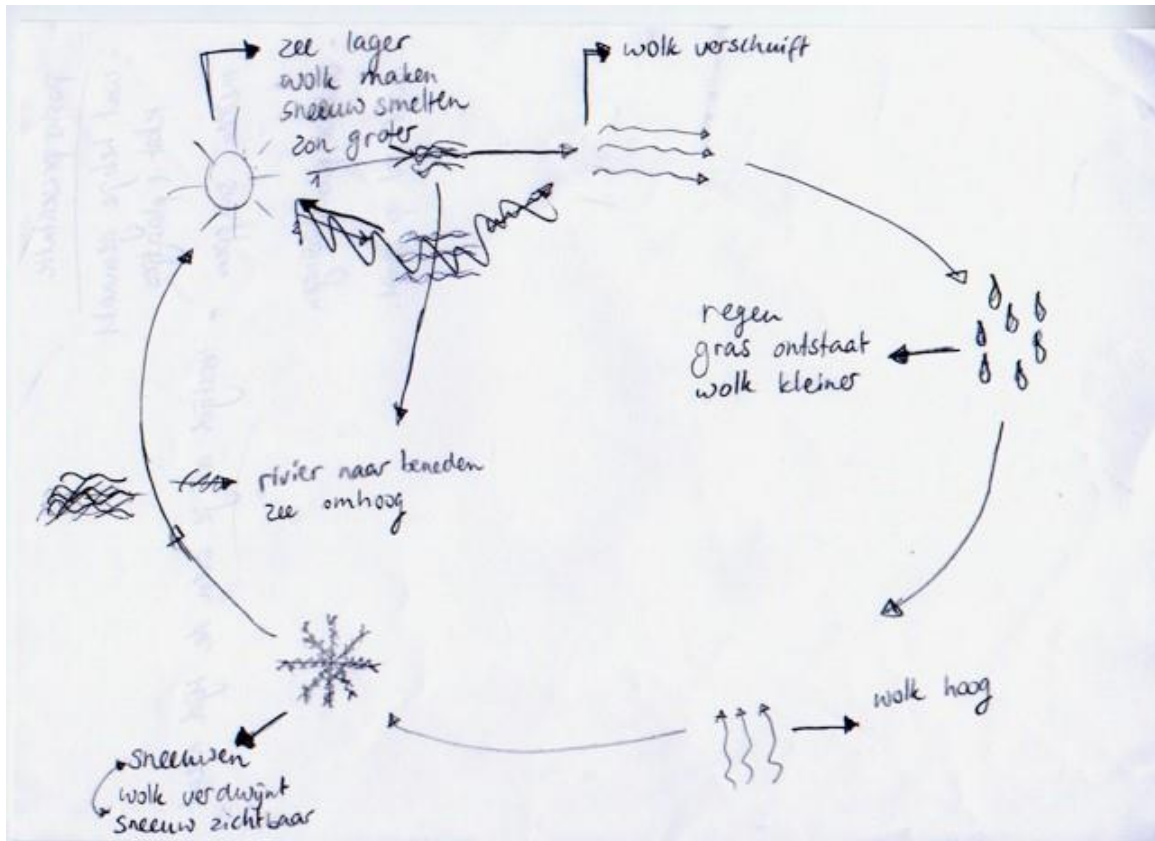 zee lager
wolk maken
sneeuw smelten
zon groter
wolk verschuift
regen
gras ontstaat
wolk kleiner
rivier naar beneden
zee omhoog
wolk hoog
sneeuwen
wolk verdwijnt
sneeuw zichtbaar